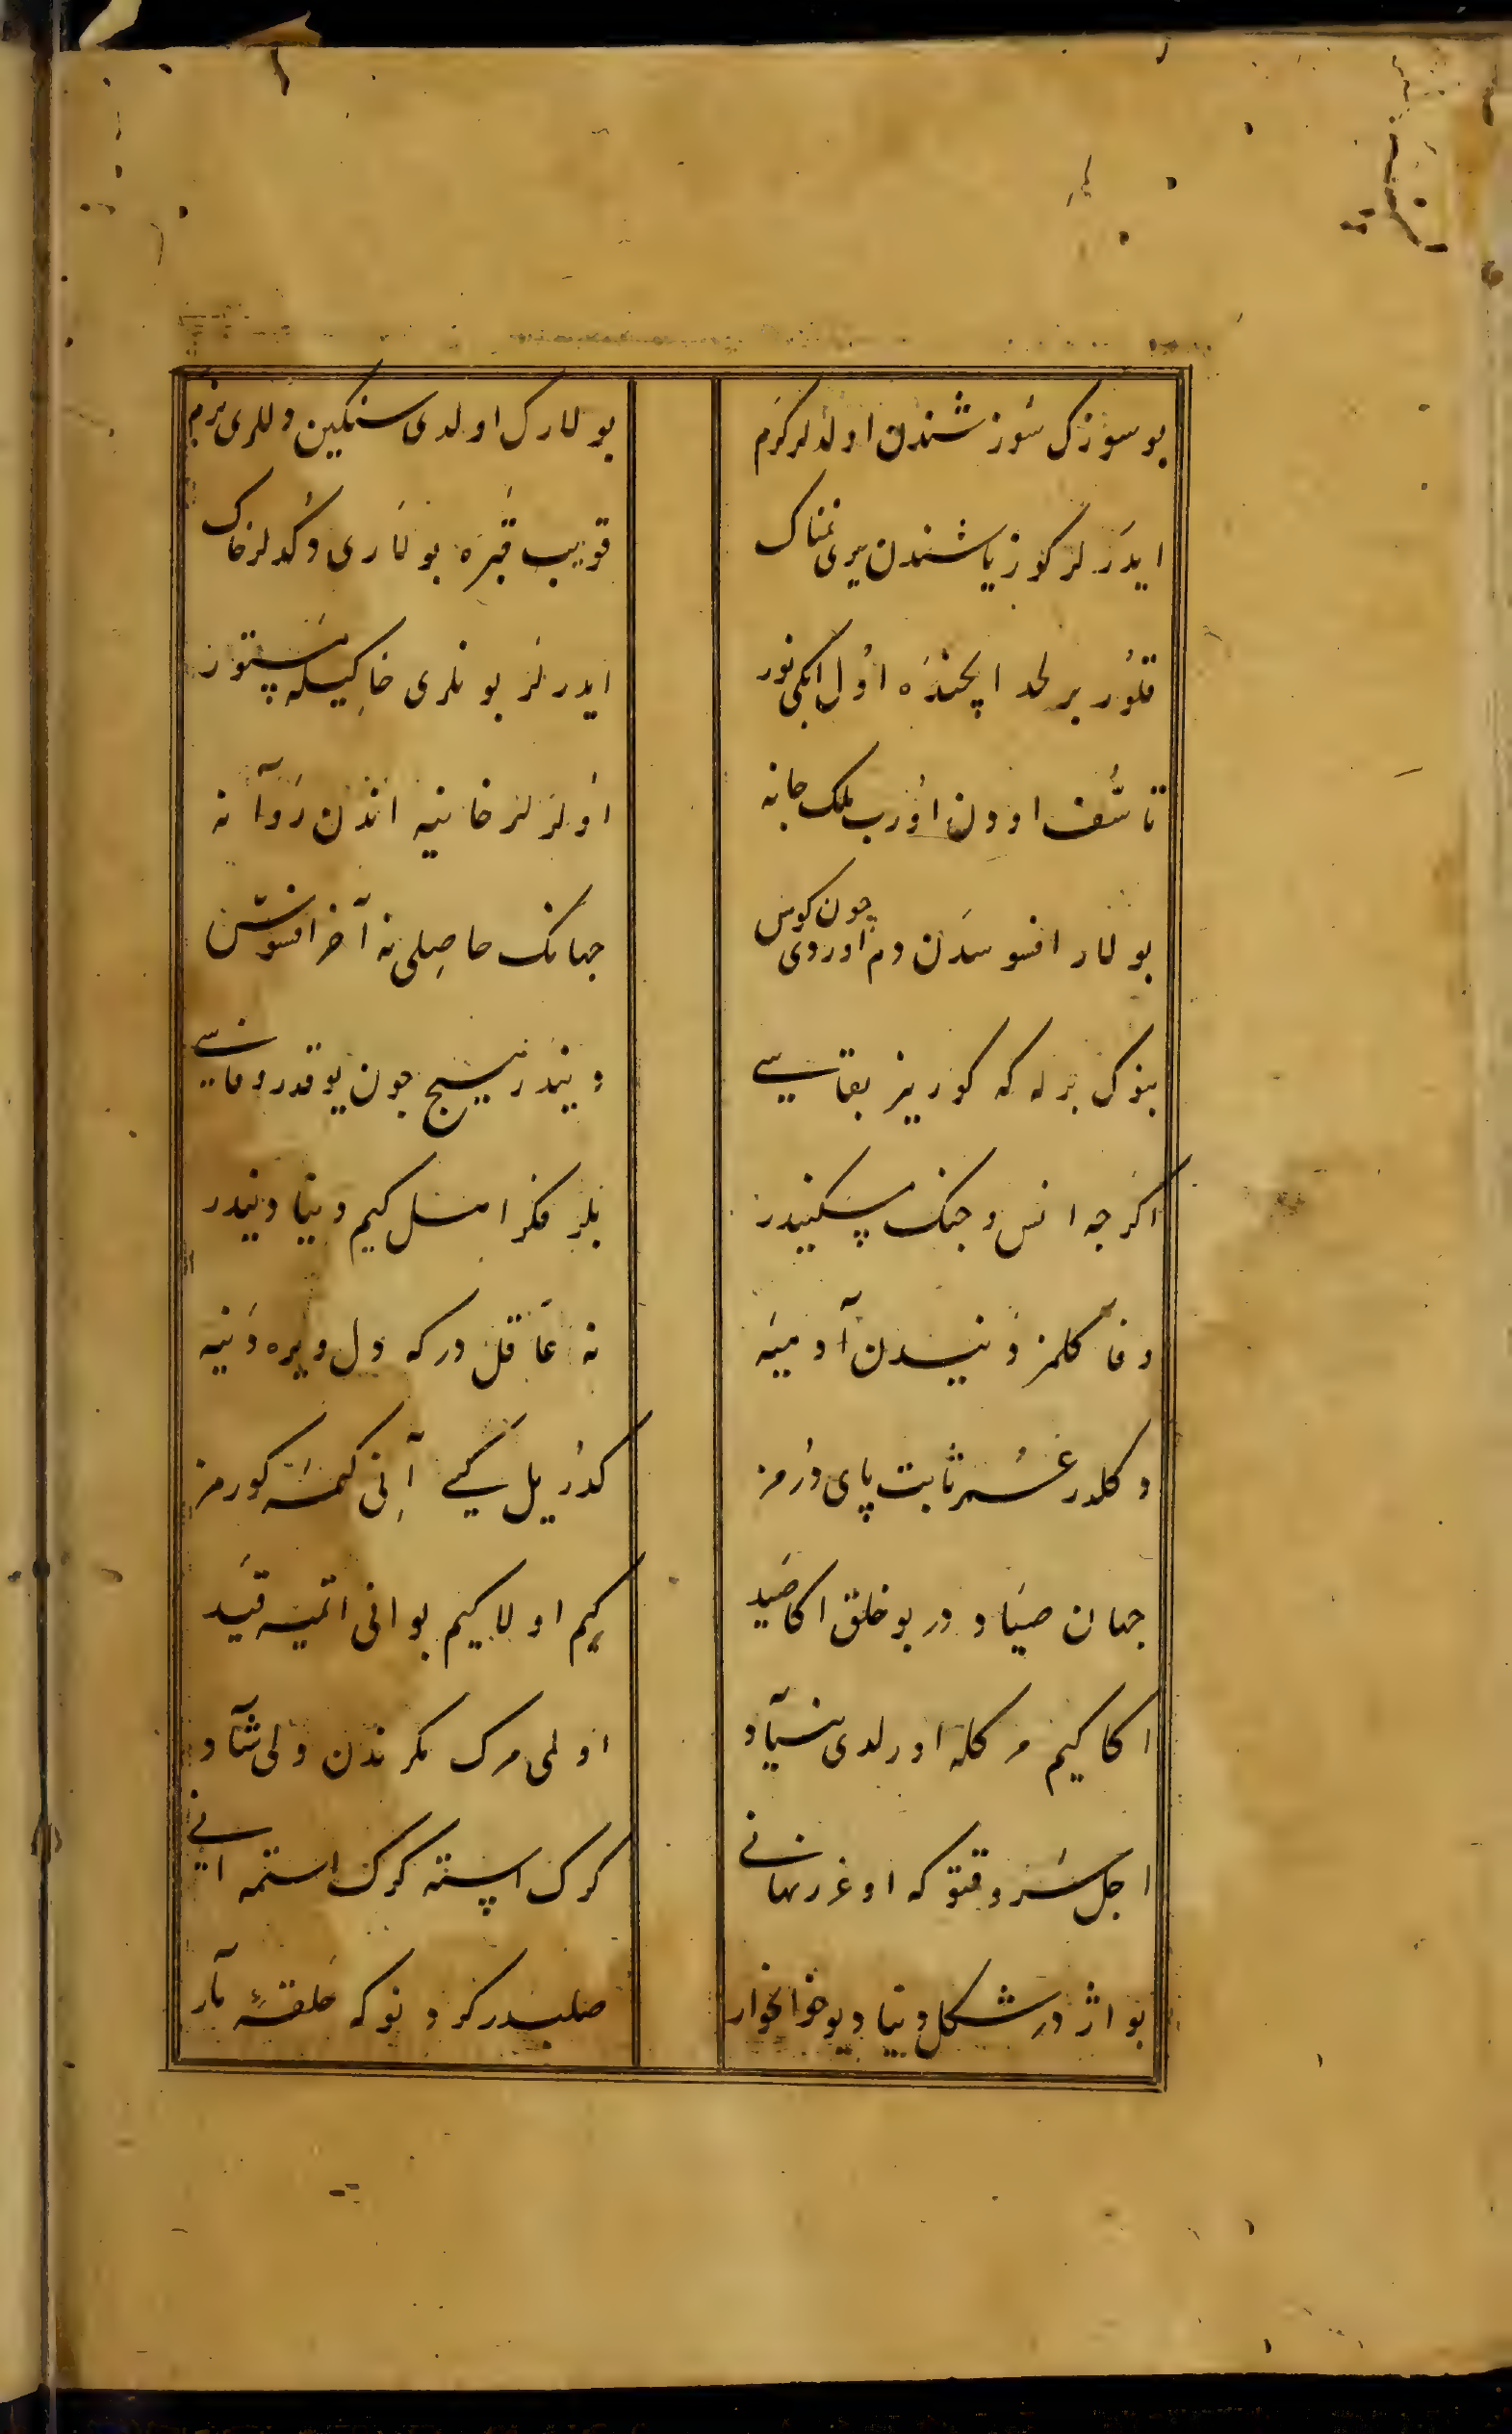 بو سوزک سوزشندن اولدلر کرم بولارک اولدی سنکین دللری نرم
ایدرلر کوز یاشندن یری نمناک قویب قبره بولاری دکدلر خاک
قلور بر لحد ایچنده اول ایکی نور ایدرلر بونلری خاکیله مستور
تاسف اودن اورب ملک جانه اولرلر خانیه اندن روانه
بولار افسوسدن دم اوردی چون کوس جهانک حاصلی نه آخر افسوس
بنوک برله که کورینز بقاسی دیندر هیچ چون یوقدر وفاسی
اکرچه انس و جنک مسکنیدر بلر فکر اهل کیم دنیا دنیدر
وفا کلمز دنیدن آدمیه نه عاقلدر که دل ویره دنیه
دکلدر عمر ثابت پای دورمز کدر یل کبی آنی کمسه کورمز
جهان صیاددر بو خلق اکا صید کیم اولا کیم بو انی اتمیه قید
اکا کیم مرکله اورلدی بنیاد اولمی مرک مکرندن ولی شاد
اجل سر وقتوکه اوغر نهانی کرک استه کرک استمه انی
بو اژدر شکل دنیا دیو خوانخوار صلبدر کردنوکه حلقهٔ مار